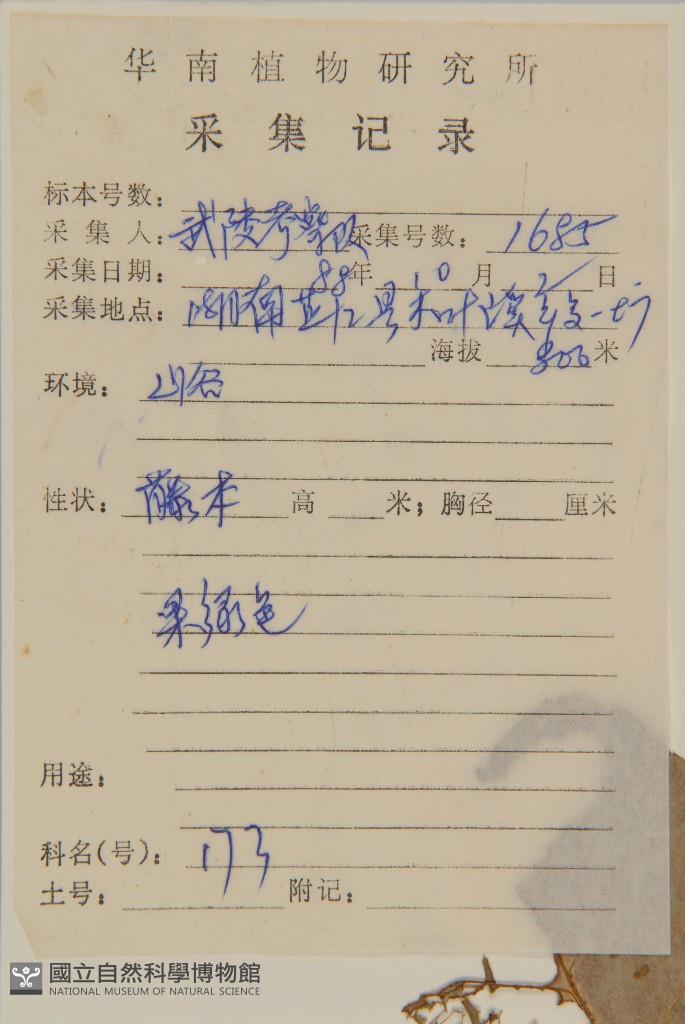 华南植物研究所
采集记录
标本号数：
采集人：武陵考察队 采集号数：1685
采集日期：88年10月2日
采集地点：湖南芷江县禾叶溪
海拔800米
环境：山谷
性状：藤本 高 米；胸径 厘米
果绿色
用途：
科名(号)：173
土号： 附记：
國立自然科學博物館
NATIONAL MUSEUM OF NATURAL SCIENCE